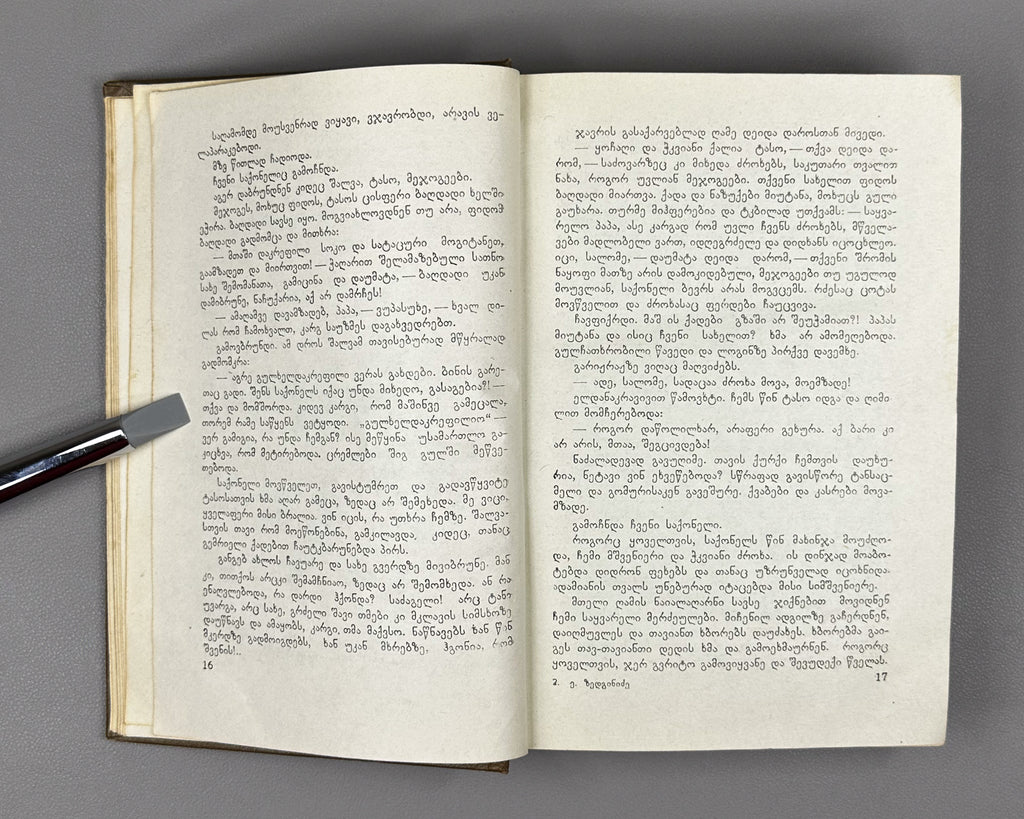 საღამომდე მოუსვენრად ვიყავი, ვჯავრობდი, არავის ვე-
ლაპარაკებოდი.
მზე წითლად ჩადიოდა.
ჩვენი საქონელიც გამოჩნდა.
აგერ დაბრუნდნენ კიდეც შალვა, ტასო, მეჯოგეები.
მეჯოგეს, მოხუც ფიდოს, ტასოს ცისფერი ბაღდადი ხელში
ეჭირა. ბაღდადი სავსე იყო. მოგვიახლოვდნენ თუ არა, ფიდომ
ბაღდადი გადმომცა და მითხრა:
— მთაში დაკრეფილი სოკო და სატაცური მოგიტანეთ,
გაამზადეთ და მიირთვით! — ჭაღარით შელამაზებული სათნო
სახე შემომანათა, გამიცინა და დაუმატა, — ბაღდადი უკან
დამიბრუნე, ნაჩუქარია, აქ არ დამრჩეს!
— ამაღამვე დავამზადებ, პაპა, — ვუპასუხე, — ხვალ დი-
ლას რომ ჩამოხვალთ, კარგ საუზმეს დაგახვედრებთ.
გამოვბრუნდი. ამ დროს შალვამ თავისებურად მწყრალად
გადმომკრა:
— აგრე გულხელდაკრეფილი ვერას გახდები. ბინის გარე-
თაც გადი. შენს საქონელს იქაც უნდა მიხედო, გასაგებია?! —
თქვა და მომშორდა. კიდევ კარგი, რომ მაშინვე გამეცალა,
თორემ რამე საწყენს ვეტყოდი. „გულხელდაკრეფილიო“ —
ვერ გამიგია, რა უნდა ჩემგან? ისე მეწყინა უსამართლო გა-
კიცხვა, რომ მეტირებოდა. ცრემლები შიგ გულში მეწვე-
თებოდა.
საქონელი მოვწველეთ, გავისტუმრეთ და გადავწყვიტე
ტასოსათვის ხმა აღარ გამეცა, ზედაც არ შემეხედა. მე ვიცი,
ყველაფერი მისი ბრალია. ვინ იცის, რა უთხრა ჩემზე. შალვა-
სთვის თავი რომ მოეწონებინა, გამკილავდა, კიდეც, თანაც
გემრიელი ქადებით ჩაუტკბარუნებდა პირს.
განგებ ახლოს ჩავუარე და სახე გვერდზე მივიბრუნე. მან
კი, თითქოს არცკი შემამჩნიაო, ზედაც არ შემომხედა. ან რა
ენაღვლებოდა, რა დარდი ჰქონდა? საძაგელი! არც ტანი
უვარგა, არც სახე, გრძელი შავი თმები კი მკლავის სიმსხოზე
დაუწნავს და ამაყობს, კარგი თმა მაქვსო. ნაწნავებს ხან წინ
მკერდზე გადმოიგდებს, ხან უკან მხრებზე, ჰგონია, რომ
შვენის!..
16
ჯავრის გასაქარვებლად ღამე დეიდა დაროსთან მივედი.
— ყოჩაღი და ჭკვიანი ქალია ტასო, — თქვა დეიდა და-
რომ, — საძოვარზეც კი მიხედა ძროხებს, საკუთარი თვალით
ნახა, როგორ უვლიან მეჯოგეები. თქვენი სახელით ფიდოს
ბაღდადი მიართვა. ქადა და ნაზუქები მიუტანა, მოხუცს გული
გაუხარა. თურმე მიჰფერებია და ტკბილად უთქვამს: — საყვა-
რელო პაპა, ასე კარგად რომ უვლი ჩვენს ძროხებს, მწველა-
ვები მადლობელი ვართ, იდღეგრძელე და დიდხანს იცოცხლეო.
იცი, სალომე, — დაუმატა დეიდა დარომ, — თქვენი შრომის
ნაყოფი მათზე არის დამოკიდებული, მეჯოგეები თუ უგულოდ
მოუვლიან, საქონელი ბევრს არას მოგვცემს. რძესაც ცოტას
მოვწველით და ძროხასაც ფერდები ჩაუცვივა.
ჩავფიქრდი. მაშ ის ქადები გზაში არ შეუჭამიათ?! პაპას
მიუტანა და ისიც ჩვენი სახელით? ხმა არ ამომეღებოდა.
გულჩათხრობილი წავედი და ლოგინზე პირქვე დავემხე.
გარიჟრაჟზე ვიღაც მაღვიძებს.
— ადე, სალომე, სადაცაა ძროხა მოვა, მოემზადე!
ელდანაკრავივით წამოვხტი. ჩემს წინ ტასო იდგა და ღიმი-
ლით მომჩერებოდა:
— როგორ დაწოლილხარ, არაფერი გეხურა. აქ ბარი კი
არ არის, მთაა, შეგცივდება!
ნაძალადევად გავუღიმე. თავის ქურქი ჩემთვის დაუხუ-
რია, ნეტავი ვინ ეხვეწებოდა? სწრაფად გავისწორე ტანსაც-
მელი და გომურისაკენ გავეშურე. ქვაბები და კასრები მოვა-
მზადე.
გამოჩნდა ჩვენი საქონელი.
როგორც ყოველთვის, საქონელს წინ მახინჯა მოუძღო-
და, ჩემი მშვენიერი და ჭკვიანი ძროხა. ის დინჯად მოაბო-
ტებდა დიდრონ ფეხებს და თანაც უზრუნველად იცოხნიდა.
ადამიანის თვალს უნებურად იტაცებდა მისი სიმშვენიერე.
მთელი ღამის ნაიალაღარნი სავსე ჯიქნებით მოვიდნენ
ჩემი საყვარელი მერძეულები. მიჩენილ ადგილზე გაჩერდნენ,
დაიღმუვლეს და თავიანთ ხბორებს დაუძახეს. ხბორებმა გაი-
გეს თავ-თავიანთი დედის ხმა და გამოეხმაურნენ. როგორც
ყოველთვის, ჯერ გვრიტო გამოვიყვანე და შევუდექი წველას.
2. ე. ზედგინიძე
17